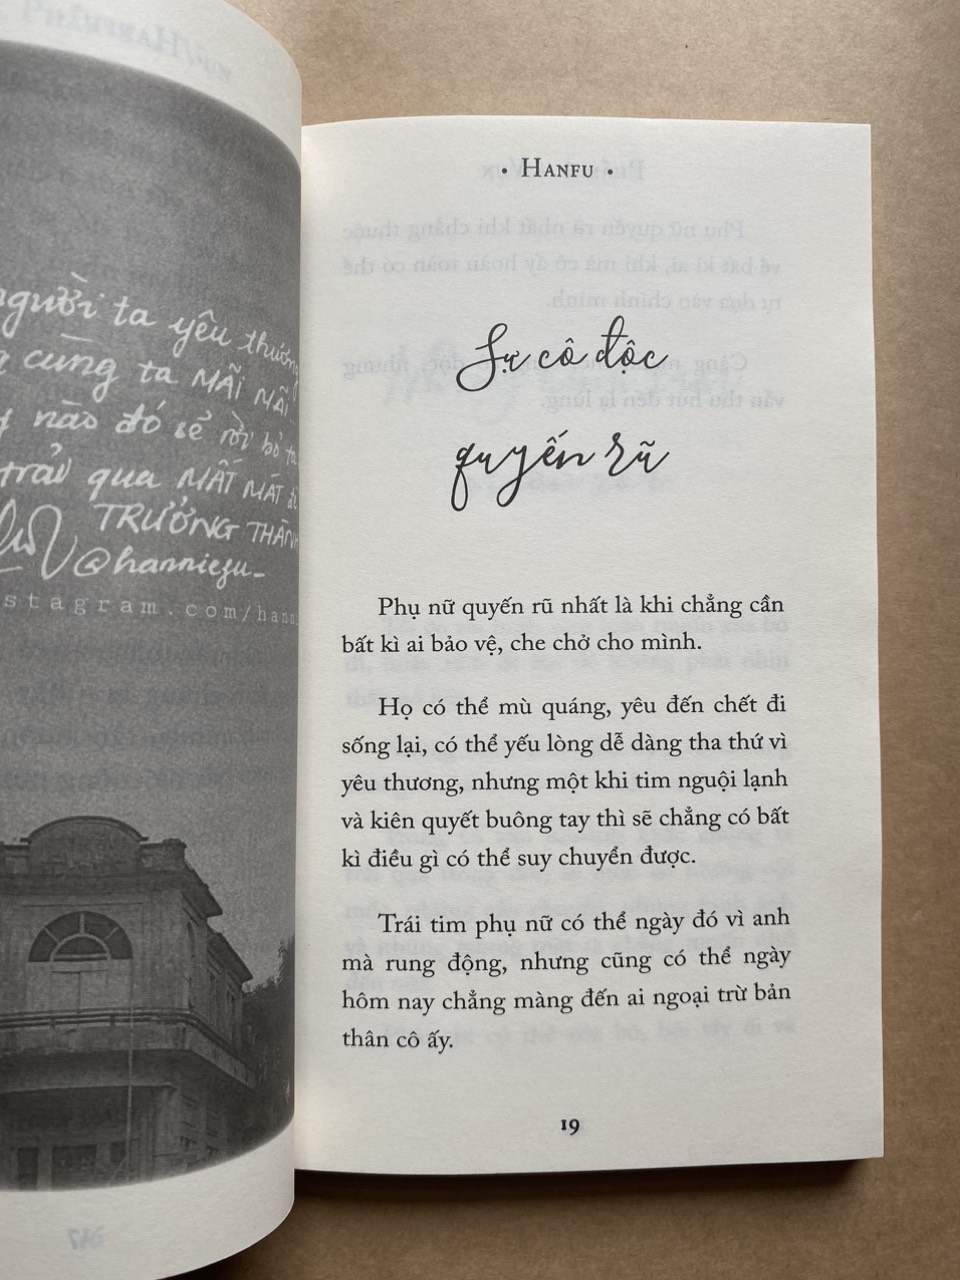 người ta yêu thương
cùng ta MÃI MÃI
nào đó sẽ rời bỏ ta
trải qua MẤT MÁT để
TRƯỞNG THÀNH
@hanniefu_
stagram.com/hanni
• HANFU •
Sự cô độc
quyến rũ
Phụ nữ quyến rũ nhất là khi chẳng cần
bất kì ai bảo vệ, che chở cho mình.
Họ có thể mù quáng, yêu đến chết đi
sống lại, có thể yếu lòng dễ dàng tha thứ vì
yêu thương, nhưng một khi tim nguội lạnh
và kiên quyết buông tay thì sẽ chẳng có bất
kì điều gì có thể suy chuyển được.
Trái tim phụ nữ có thể ngày đó vì anh
mà rung động, nhưng cũng có thể ngày
hôm nay chẳng màng đến ai ngoại trừ bản
thân cô ấy.
19